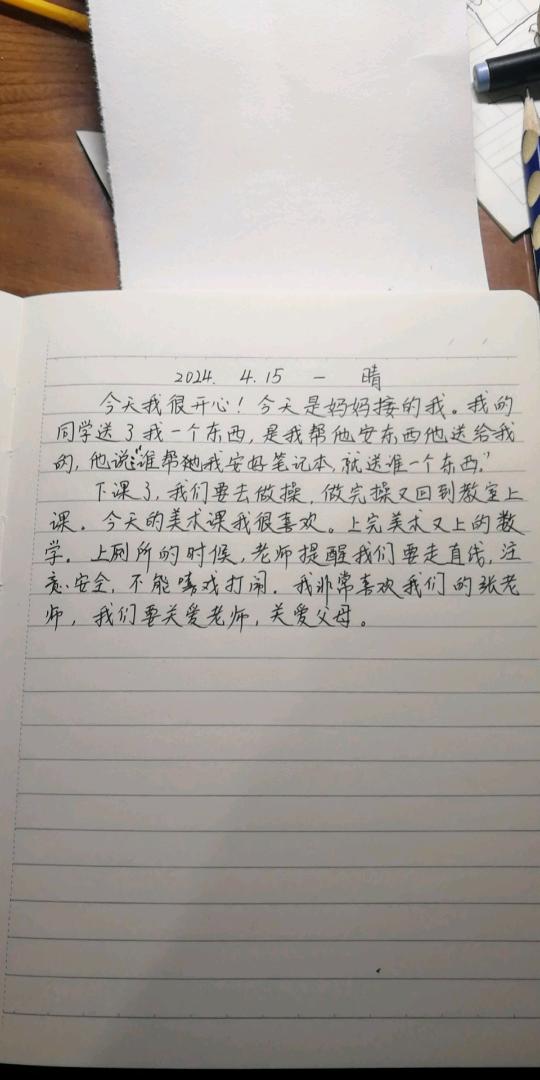 2024. 4.15 一 晴
今天我很开心！今天是妈妈接的我。我的
同学送了我一个东西，是我帮他安东西他送给我
的，他说：“谁帮我安好笔记本，就送谁一个东西。”
下课了，我们要去做操，做完操又回到教室上
课。今天的美术课我很喜欢。上完美术又上的数
学。上厕所的时候，老师提醒我们要走直线，注
意安全，不能嘻戏打闹。我非常喜欢我们的张老
师，我们要关爱老师，关爱父母。